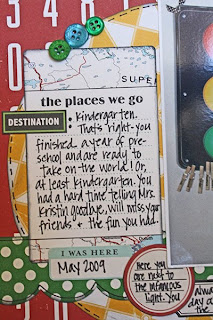 3 4 8
SUPE
the places we go
DESTINATION
• Kindergarten.
That's right - you
finished a year of pre-
school and are ready to
take on the world! Or,
at least kindergarten. You
had a hard time telling Mrs.
Kristin goodbye, will miss your
friends & the fun you had.
I WAS HERE
May 2009
Here you
are next to
the infamous
light. You
alway
day o
the